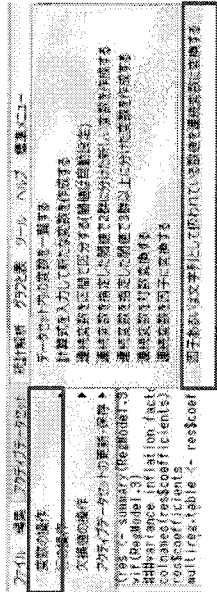 ファイル 編集 アクティブデータセット 統計解析 グラフと表 ツール ヘルプ 標準メニュー
変数の操作
の操作
欠損値の操作
アクティブデータセットの更新・保存
データセット内の変数を一覧する
計算式を入力して新たな変数を作成する
連続変数を区間で区分する(閾値は自動設定)
連続変数を指定した閾値で2群に分けた新しい変数を作成する
連続変数を指定した閾値で3群以上に分けた変数を作成する
連続変数を対数変換する
連続変数を因子に変換する
因子あるいは文字列として扱われている数値を連続変数に変換する
(res <- summary(RegModel.3
vif(RegModel.3)
###variance inflation facto
colnames(res$coefficients)
res$coefficients
multireg.table <- res$coef